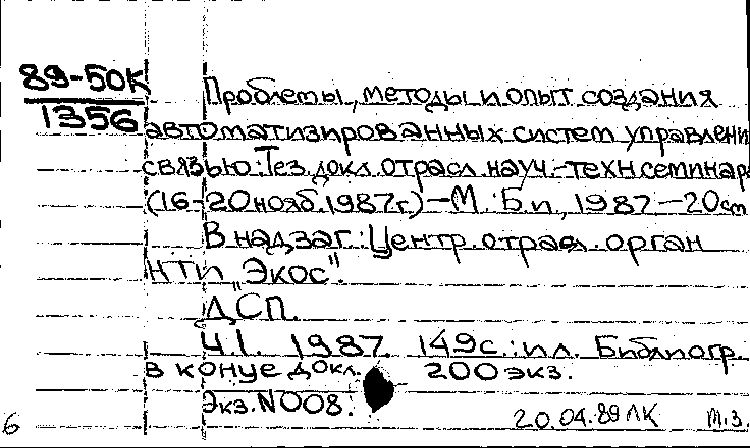 89-50К
1356
Проблемы, методы и опыт создания
автоматизированных систем управлени
связью: Тез. докл. отрасл. науч.-техн. семинара
(16-20 нояб. 1987г.) – М.: Б.и., 1987 – 20 см
В надзаг: Центр. отрасл. орган
НТИ "Экос".
ДСП.
Ч.I. 1987. 149с.: ил. Библиогр.
в конце докл. 200 экз.
Экз. N008.
20.04.89 ЛК м.з.
6